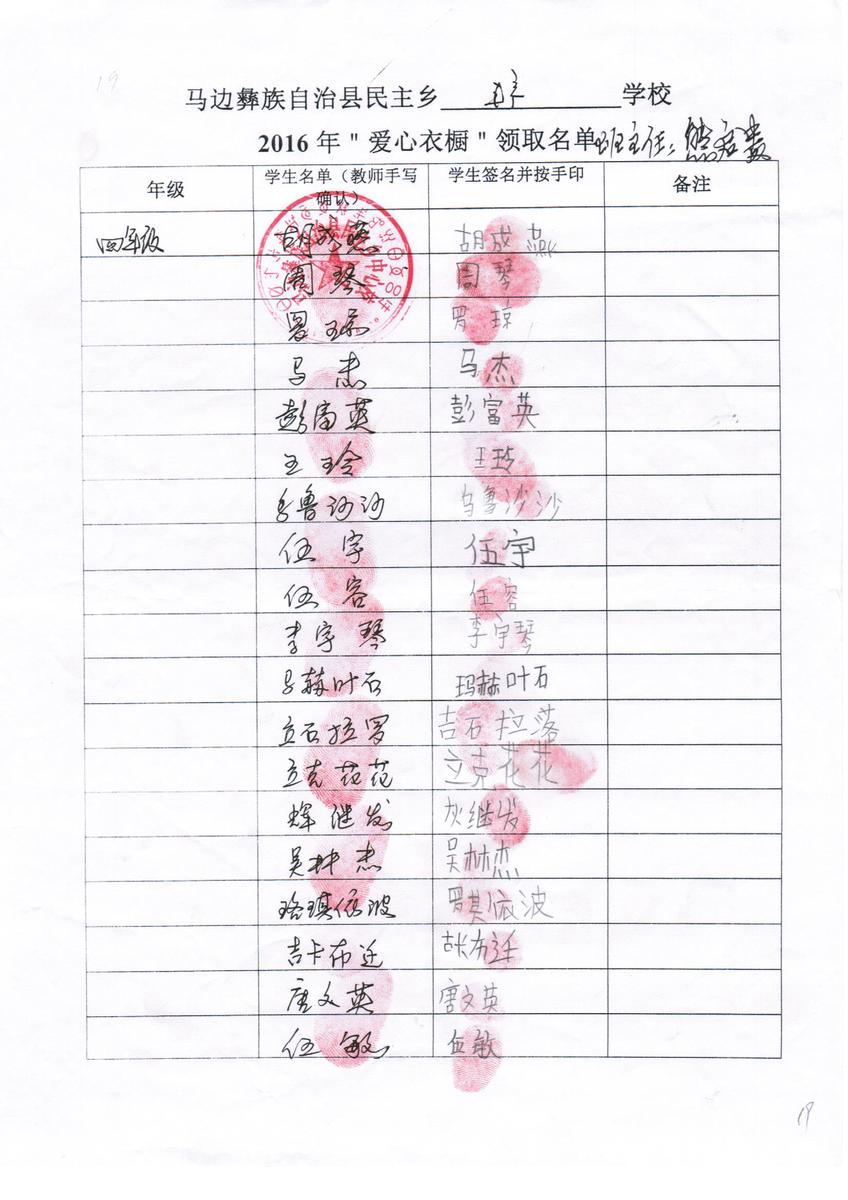 19
马边彝族自治县民主乡 学校
2016年"爱心衣橱"领取名单 班主任：
年级 学生名单（教师手写确认） 学生签名并按手印 备注
四年级 胡成燕 胡成燕
周琴 周琴
罗琼 罗琼
马杰 马杰
彭富英 彭富英
王玲 王玲
乌鲁沙沙 乌鲁沙沙
伍宇 伍宇
伍容 伍容
李宇琴 李宇琴
马赫叶石 玛赫叶石
吉石拉罗 吉石拉落
立克花花 立克花花
继发 灰继发
吴林杰 吴林杰
洛琪依波 罗其依波
吉卡布迁 布迁
唐文英 唐文英
伍敏 伍敏
19